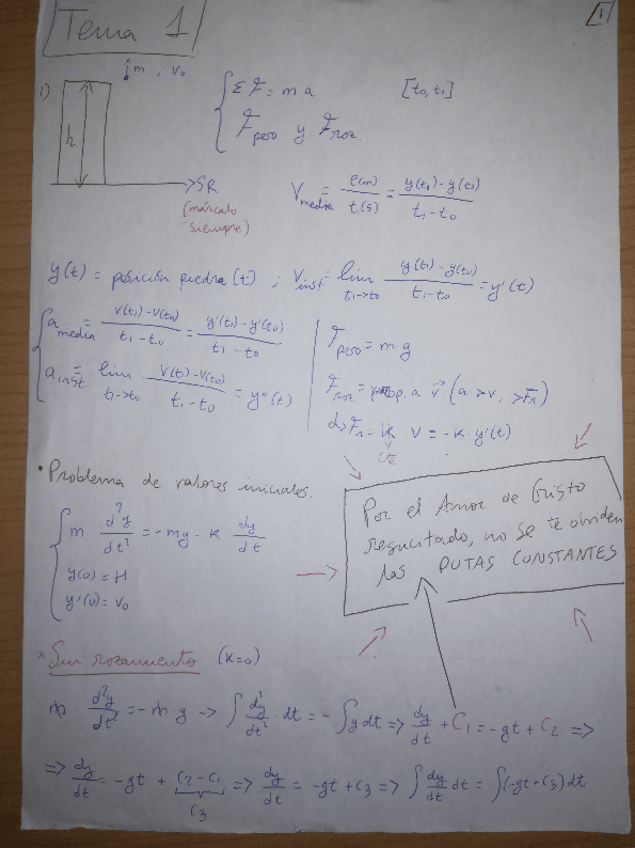 Tema 1
1
m , v₀
1)
h
SR
(márcalo
siempre)
Σ F = m a [t₀, t₁]
F peso y F roz.
V media = e(m)/t(s) = (y(t₁) - y(t₀))/(t₁ - t₀)
y(t) = posición piedra (t) ; V inst = lim t₁->t₀ (y(t₁) - y(t₀))/(t₁ - t₀) = y'(t)
a media = (v(t₁) - v(t₀))/(t₁ - t₀) = (y'(t₁) - y'(t₀))/(t₁ - t₀)
a inst = lim t₁->t₀ (v(t₁) - v(t₀))/(t₁ - t₀) = y''(t)
F peso = m · g
F roz = prop. a v (a > v, > Fr)
v = -k · y'(t)
• Problema de valores iniciales.
m · d²y/dt² = -mg - k · dy/dt
y(0) = H
y'(0) = v₀
Por el Amor de Cristo
resucitado, no se te olviden
las PUTAS CONSTANTES
* Sin rozamiento (k=0)
m · d²y/dt² = -m · g -> ∫ d²y/dt² · dt = - ∫ g dt => dy/dt + C₁ = -gt + C₂ =>
=> dy/dt = -gt + C₂ - C₁ => dy/dt = -gt + C₃ => ∫ dy/dt dt = ∫(-gt + C₃) dt
C₃